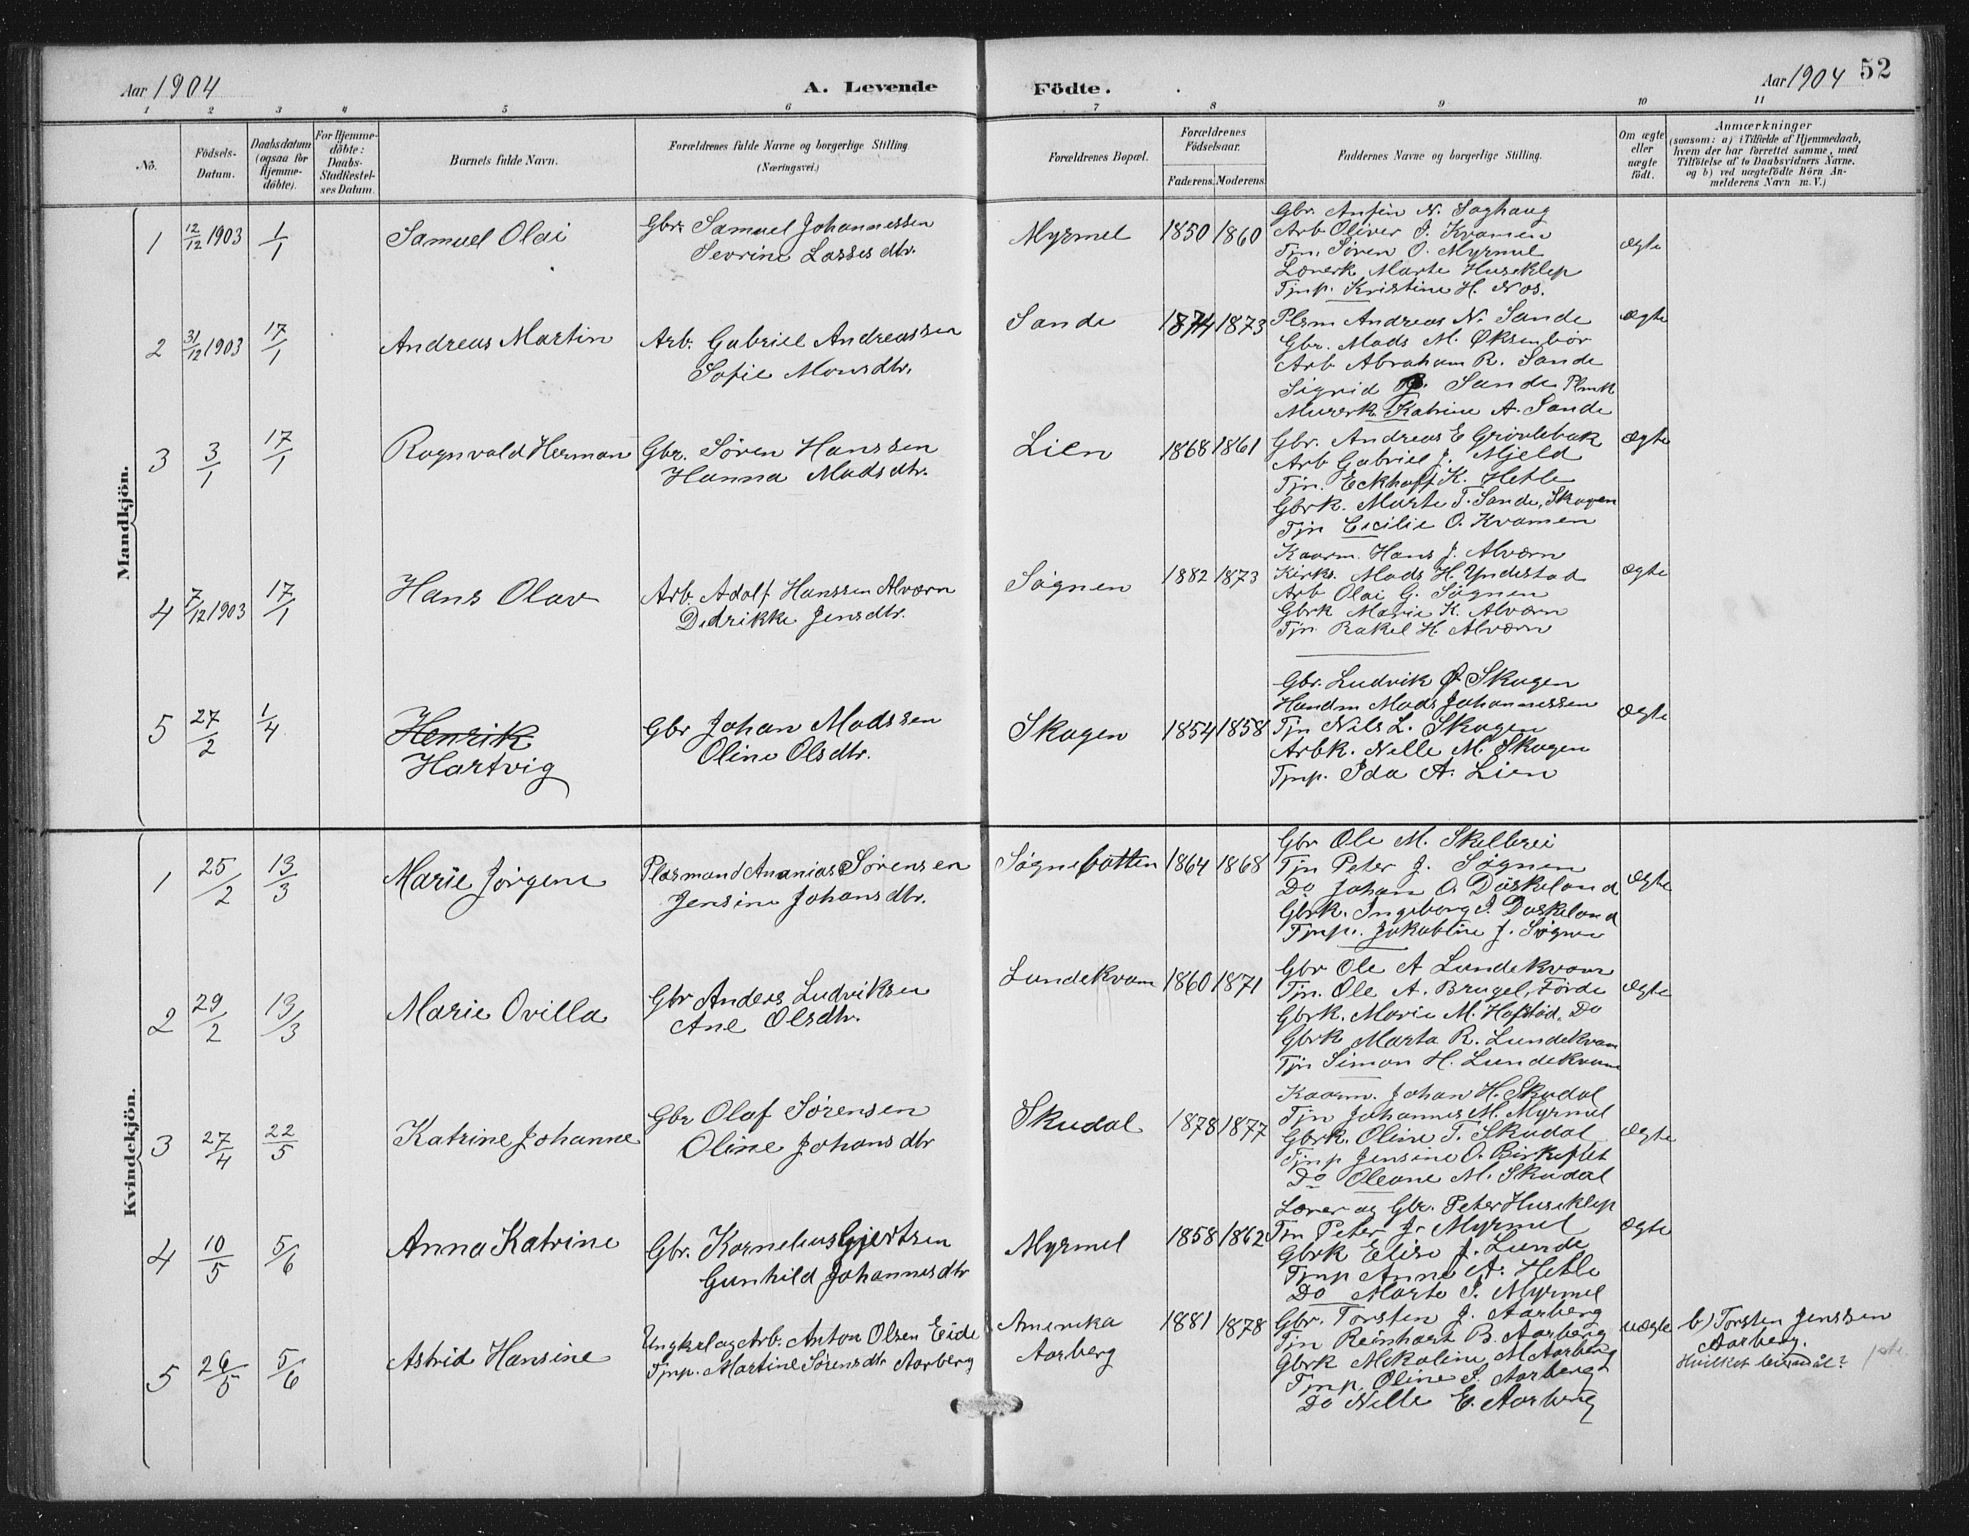 Aar 1904
A. Levende Födte.
Aar 1904 52
1 2 3 4 5 6 7 8 9 10 11
Nô.
Födsels-Datum.
Daabsdatum (ogsaa for Hjemme-döbte).
For Hjemme-döbte: Daabs-Stadfæstel-ses Datum.
Barnets fulde Navn.
Forældrenes fulde Navne og borgerlige Stilling (Næringsvei.)
Forældrenes Bopæl.
Forældrenes Födselsaar.
Faderens. Moderens.
Faddernes Navne og borgerlige Stilling.
Om ægte eller uægte födt.
Anmærkninger
(saasom: a) i Tilfælde af Hjemmedaab, hvem der har forrettet samme, med Tilföielse af to Daabsvidners Navne. og b) ved uægtefödte Börn An-melderens Navn m. V.)
Mandkjön.
1 12/12 1903 1/1 Samuel Olai
Gbr. Samuel Johannessen
Sevrine Lasses dtr.
Myrmel 1850 1860
Gbr. Anfin N. Saghaug
Arb Oliver J. Kvamen
Tjn. Søren O. Myrmel
Lærerk Marte Huseklep
Tjnp. Kristine H. Nøs.
ægte
2 31/12 1903 17/1 Andreas Martin
Arb. Gabriel Andreassen
Sofie Monsdtr.
Sande 1874 1873
Plsm Andreas N. Sande
Gbr. Mads M. Øksenbør
Arb Abraham R. Sande
Sigrid Sande Plmk
Murerk. Katrine A. Sande
ægte
3 3/1 17/1 Ragnvald Herman
Gbr. Søren Hanssen
Hanna Madsdtr.
Lien 1868 1861
Gbr. Andreas E Grøvlebak
Arb Gabriel J. Mjeld
Tjn. Eckhoff K. Hetle
Gbrk. Marte T. Sande, Skogen
Tjn Cecilie O. Kvamen
ægte
4 7/12 1903 17/1 Hans Olav
Arb. Adolf Hanssen Alværn
Didrikke Jensdtr.
Søgnen 1882 1873
Kaarm. Hans J. Alværn
Kirks. Mads H. Yndestad
Arb Olai G. Søgnen
Gbrk Marie K. Alværn
Tjn Rakel H. Alværn
ægte
5 27/2 1/4 Henrik
Hartvig
Gbr Johan Madssen
Oline Olsdtr.
Skogen 1854 1858
Gbr. Ludvik Skogen
Handm Mads Johannessen
Tjn Nils L. Skogen
Arbk. Nille M. Skogen
Tjnp. Ida A. Lien
ægte
Kvindekjön.
1 25/2 13/3 Marie Jørgine
Plasmand Ananias Sørensen
Jensine Johansdtr.
Søgnebotten 1864 1868
Gbr Ole M. Skelbrei
Tjn Peter J. Søgnen
Do Johan O. Døskeland
Gbrk. Ingeborg J. Døskeland
Tjnp. Jakobine J. Søgnen
ægte
2 29/2 13/3 Marie Ovilla
Gbr Anders Ludviksen
Ane Olsdtr.
Lundekvam 1860 1871
Gbr Ole A Lundekvam
Tjn. Ole A. Brugel, Førde
Gbrk. Marie M. Hafstad, Do
Gbrk Marta R. Lundekvam
Tjn Simon H. Lundekvam
ægte
3 27/4 22/5 Katrine Johanne
Gbr Olaf Sørensen
Oline Johansdtr
Skudal 1878 1877
Kaarm. Johan H. Skudal
Tjn Johannes M. Myrmel
Gbrk. Oline T. Skudal
Tjnp Jensine O. Birkeflet
Do Oleane M. Skudal
ægte
4 10/5 5/6 Anna Katrine
Gbr. Kornelius Gjertsen
Gunhild Johannesdtr
Myrmel 1858 1862
Lærer og Gbr. Peter Huseklep
Tjn Peter J. Myrmel
Gbrk Elise J. Lunde
Tjnp Anne A. Hetle
Do Marte S. Myrmel
ægte
5 26/5 5/6 Astrid Hansine
Ungkal og Arb. Anton Olsen Eide
Tjnp. Martine Sørensdtr Aarberg
Amerika
Aarberg
1881 1878
Gbr. Torsten J. Aarberg
Tjn Reinhart B. Aarberg
Gbrk Mikaline M Aarberg
Tjnp. Oline S. Aarberg
Do Nille E. Aarberg
uægte
b) Torsten Jenssen
Aarberg.
Hvilket leiermål?